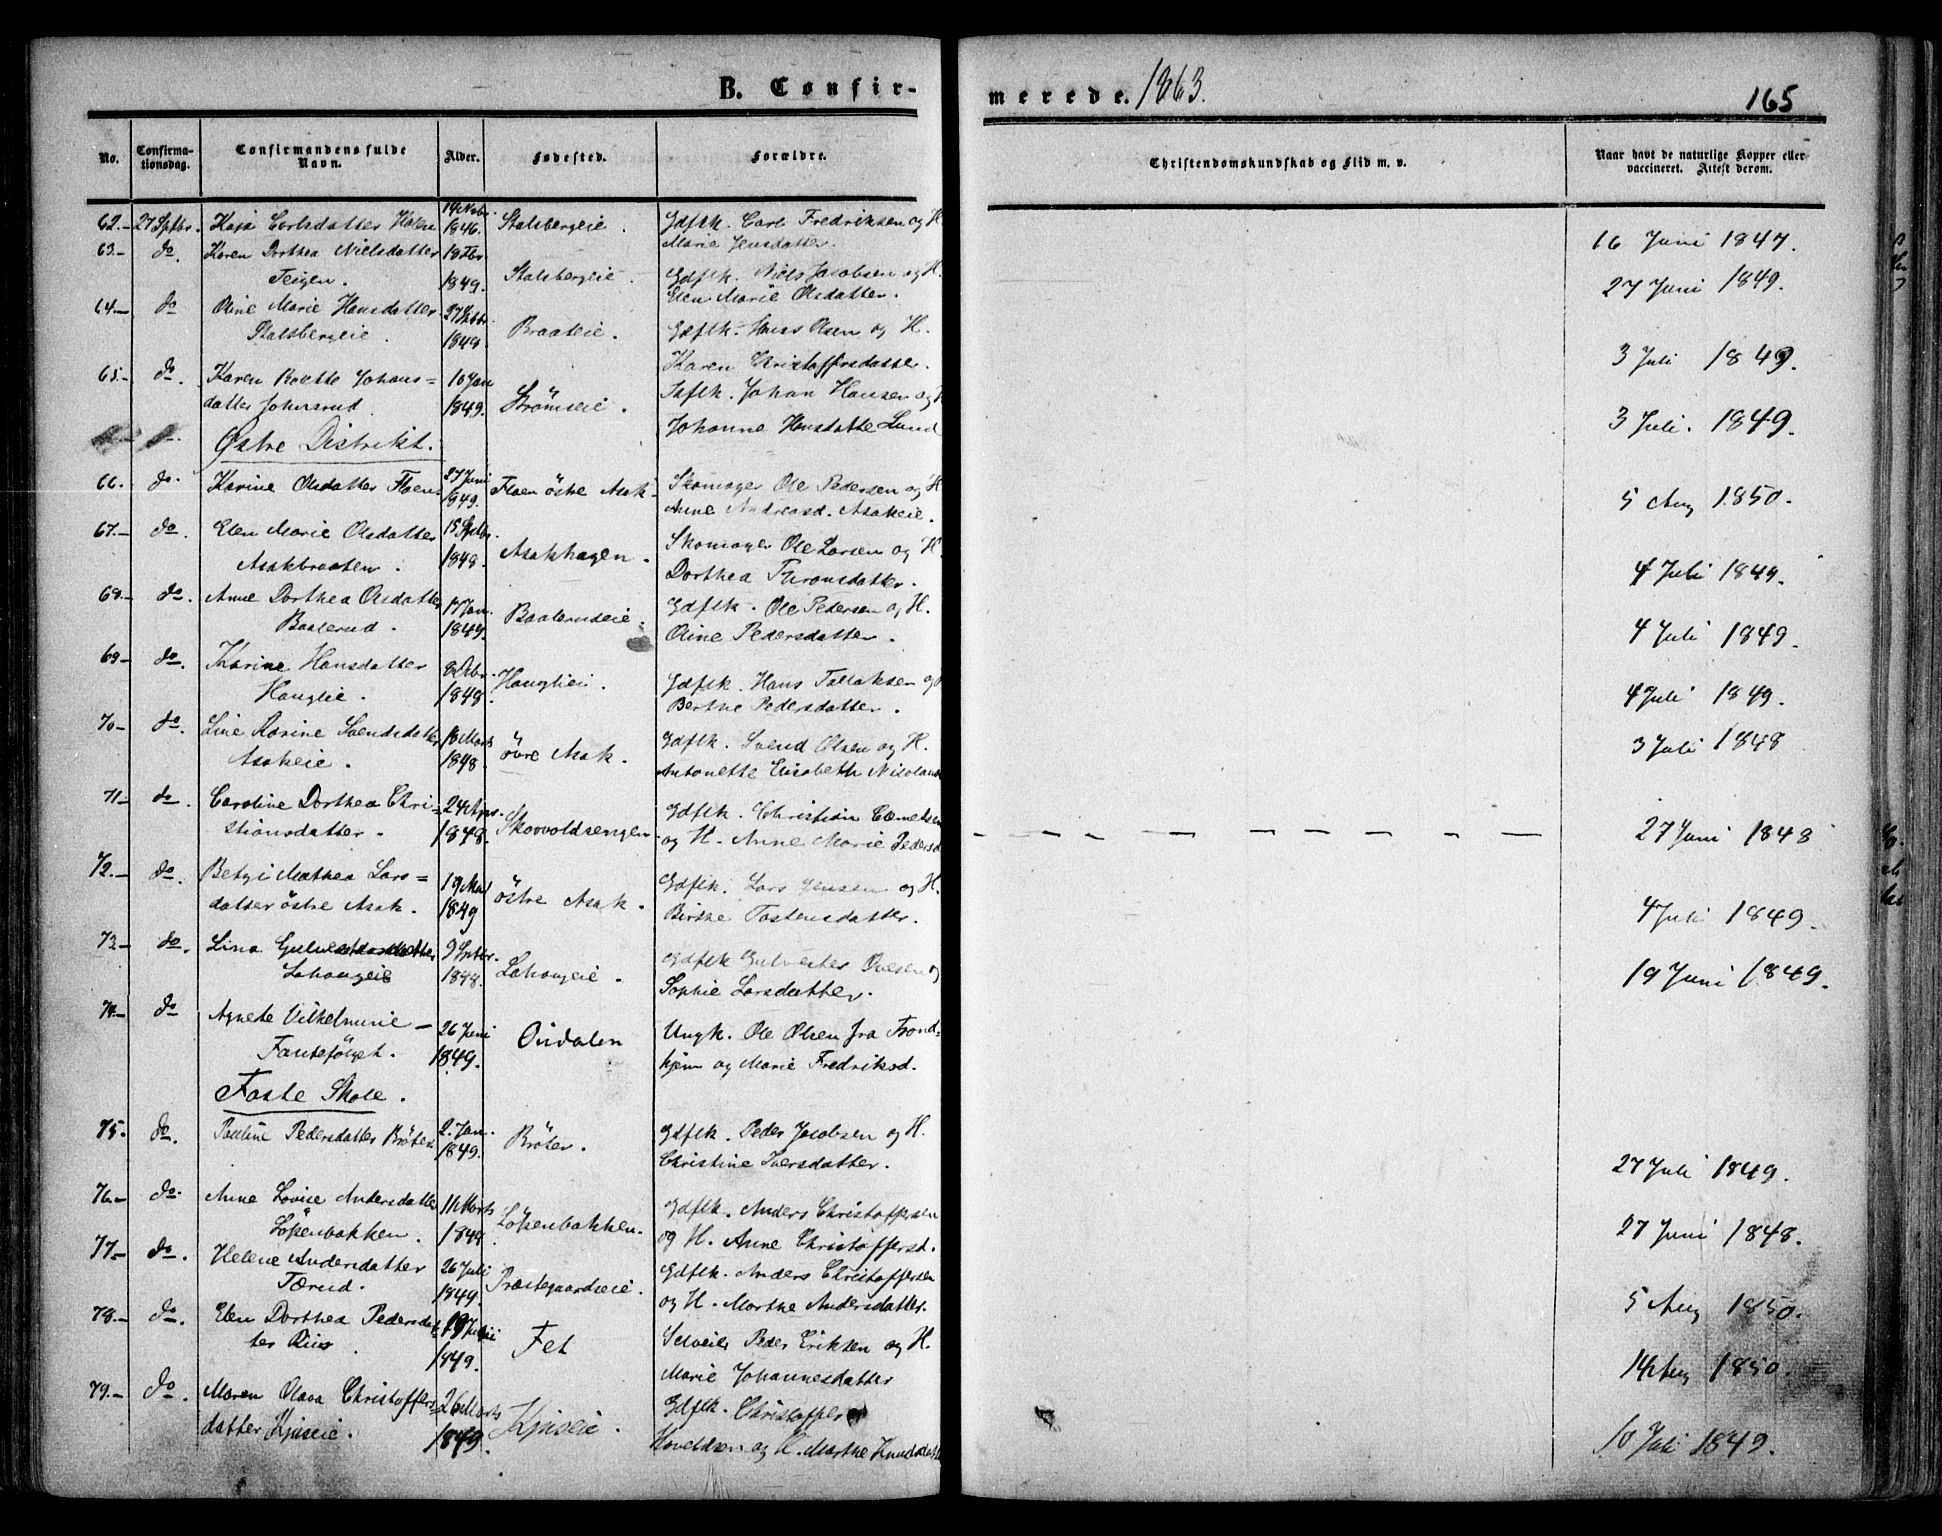 B. Confir-
merede. 1863.
165
No. Confirma-tionsdag. Confirmandens fulde Navn. Alder. Fødested. Forældre. Christendomskundskab og Flid m. v. Naar havt de naturlige Kopper eller vaccineret. Attest derom.
62.- 27 Sptbr. Kaja Carlsdatter 1846. Stalsbergeie. Gdflk. Carl Fredriksen og H.
Marie Jensdatter. 16 Juni 1847.
63.- do. Karen Dorthea Nielsdatter
Teigen. 1849. Stalsbergeie. Gdflk. Niels Jacobsen og H.
Elen Marie Olsdatter. 27 Juni 1849.
64.- do Oline Marie Hansdatter
Stalsbergeie. 1849. Braateie. Gdflk. Hans Olsen og H.
Karen Christoffersdatter. 3 Juli 1849.
65.- do. Karen Boette Johans= 10 Jan
datter Johnsrud. 1849. Strömseie. Isflk. Johan Hansen og H
Johanne Hansdatter Lund 3 Juli. 1849.
Østre Distrikt.
66. do. Karine Olsdatter Floen 27 Juni
1849. Floen östre Asak Skomager Ole Pedersen og H
Anne Andreasd. Asakeie. 5 Aug 1850.
67.- do. Elen Marie Olsdatter 15 Sptbr.
Asakbraaten. 1848 Asakhagen. Skomager Ole Larsen og H.
Dorthea Thronsdatter. 4 Juli 1849.
68.- do. Anne Dorthea Olsdatter 17 Jan.
Baalerud. 1849. Baalerudeie. Gdflk. Ole Pedersen og H.
Oline Pedersdatter. 4 Juli 1849.
69- do. Karine Hansdatter
Hauglie. 1848. Hauglieie. Gdflk. Hans Tollaksen og H
Berthe Pedersdatter. 4 Juli 1849.
70- do Line Karine Svendsdatter 18 Marts
Asakeie. 1848. övre Asak. Gdflk. Svend Olsen og H.
Antonette Elisabeth Nicolaisd 3 Juli 1848
71- do. Caroline Dorthea Chri= 24 Apr.
stiansdatter. 1848. Skovvoldsengen Gdflk. Christian
og H. Anne Marie Pedersd 27 Juni 1848
72.- do. Betzi Mathea Lars= 19 Mai
datter östre Asak. 1849 östre Asak. Gdflk. Lars Jensen og H.
Birthe Tostensdatter. 4 Juli 1849.
73- do. Lina 9 Sptbr.
Lahaugeie 1848. Lahaugeie. Gdflk Gulvester Ovesen og
Sophie Larsdatter. 19 Juni 1849.
74.- do Agnete Vilhelmine - 26 Juni
Fanteföget. 1849. Ourdalen Ungk. Ole Olsen fra Trond-
hjem og Marie Fredriksd.
Faste Skole.
75. do. Pauline Pedersdatter Bröter 2. Jan.
1849. Bröter. Gdflk. Peder Jacobsen og H.
Christine Iversdatter. 27 Juli 1849.
76.- do. Anne Lovise Andersdatter 11 Marts
Lökenbakken. 1848. Lökenbakken. Gdflk. Anders Christoffersen
og H. Anne Christoffersd. 27 Juni 1848.
77.- do. Helene Andersdatter 26 Juli
Tærud. 1849. Præstegaardseie. Gdflk. Anders Christoffersen
og H. Marthe Andersdatter. 5 Aug 1850.
78.- do. Elen Dorthea Pedersdat
ter Riis. 1849. Fet Selveier Peder Eriksen og H.
Marie Johannesdatter 14 Aug 1850.
79.- do Maren Olava Christoffers= 26 Marts
datter Kjuseie. 1849. Kjuseie. Gdflk. Christoffer
og H. Marthe Knudsdatter 10 Juli 1849.